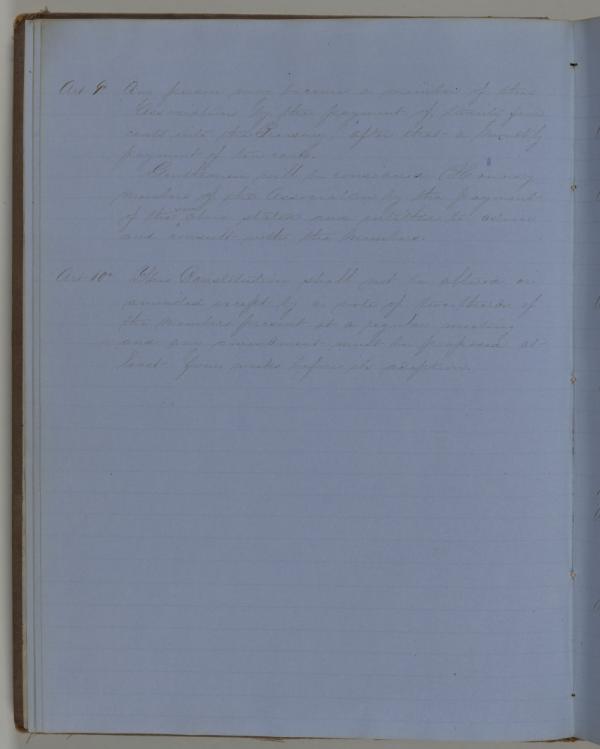 Art 9 Any person may become a member of this
Association by the payment of twenty five
cents into the Treasury, after that a monthly
payment of ten cents.
Gentlemen will be considered Honorary
members of the Association by the payment
of the sum above stated and entitled to advise
and consult with the members.
Art 10 This Constitution shall not be altered or
amended except by a vote of two thirds of
the members present at a regular meeting
and any amendment must be proposed at
least four weeks before its adoption.